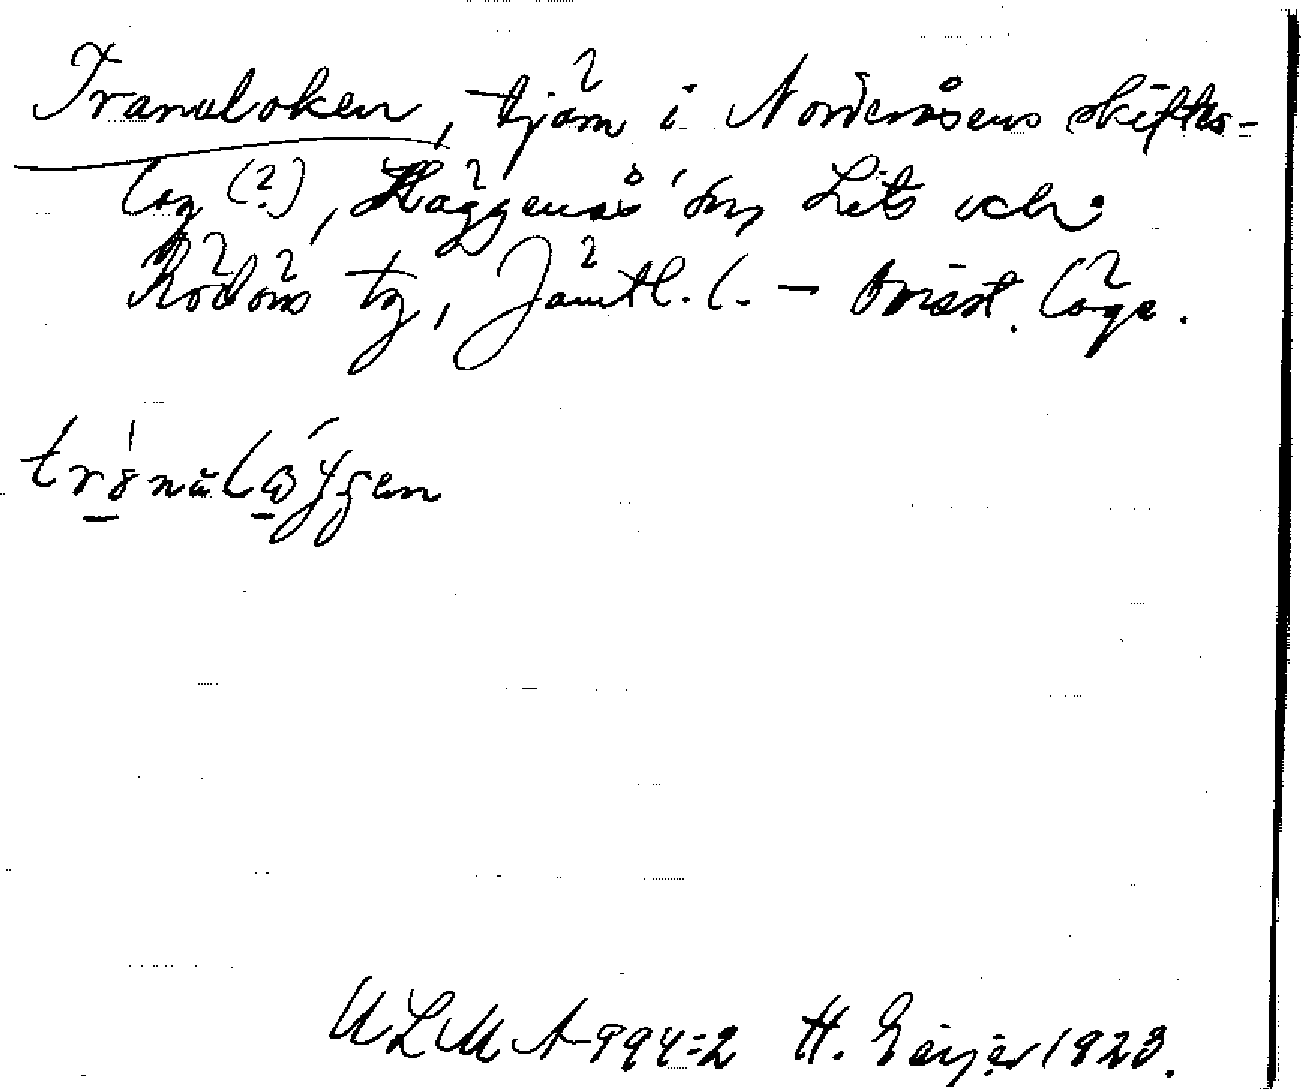 Tranuloken, tjäm i Nordenåsens skifts-
lag (?), Häggenås sn, Lits och
Rödöns tg, Jämtl. l. – Omist. läge.
ULMA 994:2 H. Geijer 1923.